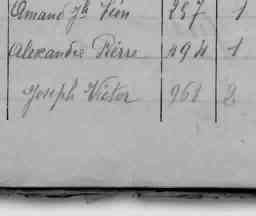 Amand Jh Léon 257 1
Alexandre Pierre 494 1
Joseph Victor 968 2